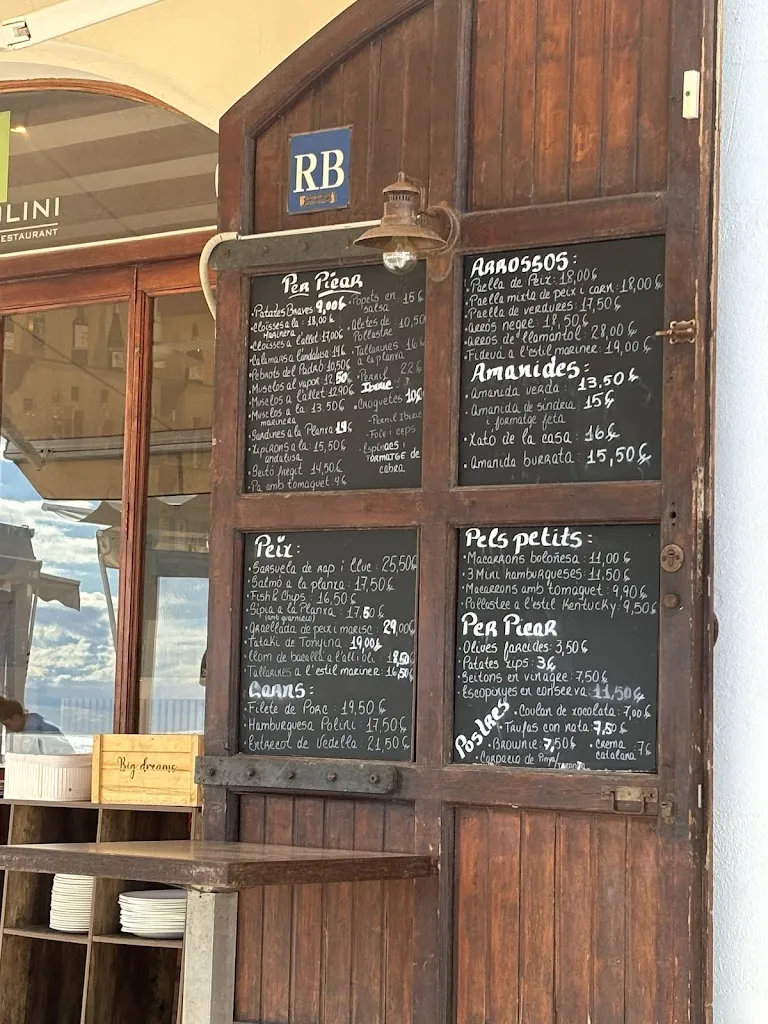 RB
LINI
RESTAURANT
Per Picar
• Patates Braves 9,00€
• Cloïsses a la: 18,00€
Marinera
• Cloïsses a l'allet: 17,00€
• Calamars a l'andalusa 14€
• Pebrots del Padró 10,50€
• Musclos al vapor 12,50
• Musclos a l'allet 12,90€
• Musclos a la 13.50€
marinera
• Sardines a la Planxa 14€
• Xipirons a la: 15,50€
andalusa
• Seitó fregit 14,50€
• Pa amb tomaquet 4€
• Popets en 15€
salsa
• Aletes de 10,50
Pollastre
• Tallarines 16€
a la planxa
• Pernil 22€
Iberic
• Croquetes 10€
- Pernil Iberic
- Foie i ceps
- Espinacs i
formatge de
cabra
Arrossos:
• Paella de Peix: 18,00€
• Paella mixta de peix i carn: 18,00€
• Paella de verdures: 17,50€
• Arròs negre: 18,50€
• Arròs de llamàntol: 28,00€
• Fideuà a l'estil mariner: 19,00€
Amanides:
• Amanida verda: 13,50€
• Amanida de síndria 15€
i formatge feta
• Xató de la casa: 16€
• Amanida burrata: 15,50€
Peix:
• Sarsuela de rap i lluç: 25,50€
• Salmó a la planxa: 17,50€
• Fish & Chips: 16,50€
• Sípia a la Planxa: 17,50€
(amb guarnició)
• Graellada de peix i marisc: 29,00€
• Tataki de Tonyina 19,00€
• Llom de bacallà a l'all i oli: 18,50
• Tallarines a l'estil mariner: 16,50€
Carns:
• Filete de Porc: 19,50€
• Hamburguesa Polini: 17,50€
• Entrecot de Vedella: 21,50€
Pels petits:
• Macarrons boloñesa: 11,00€
• 3 Mini hamburgueses: 11,50€
• Macarrons amb tomaquet: 9,90€
• Pollastre a l'estil Kentucky: 9,50€
Per Picar
• Olives farcides: 3,50€
• Patates xips: 3€
• Seitons en vinagre: 7,50€
• Escopinyes en conserva: 11,50€
Postres
• Coulan de xocolata: 7,00€
• Trufas con nata: 7,50€
• Brownie: 7,50€
• Crema 7€
catalana
• Carpacio de Pinya/taronja
Big dreams